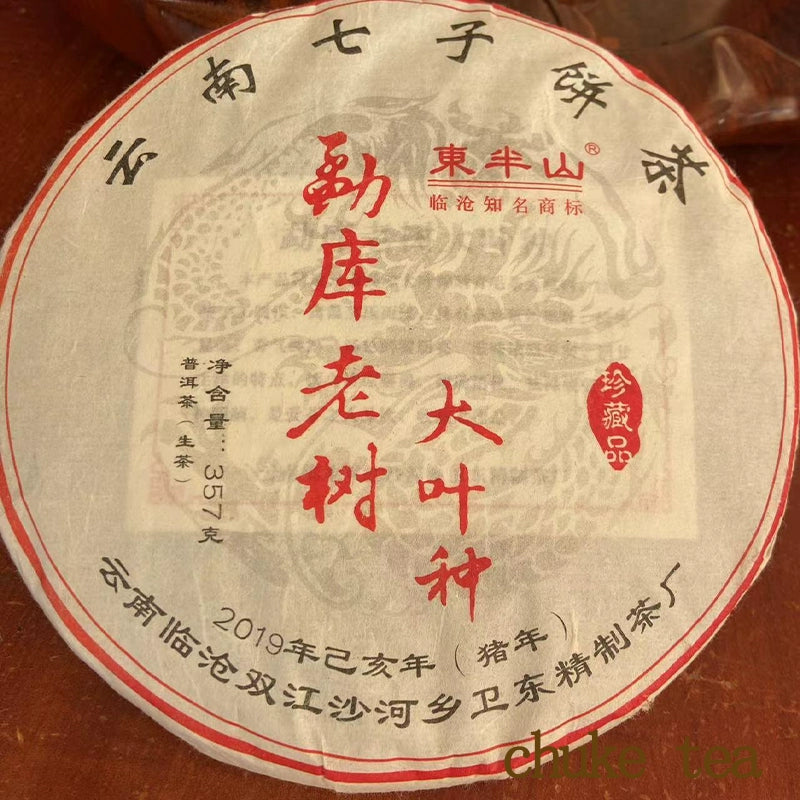 云南七子饼茶
東半山®
临沧知名商标
勐库老树
大叶种
珍藏品
净含量：357克
普洱茶（生茶）
2019年己亥年（猪年）
云南临沧双江沙河乡卫东精制茶厂
chuke tea